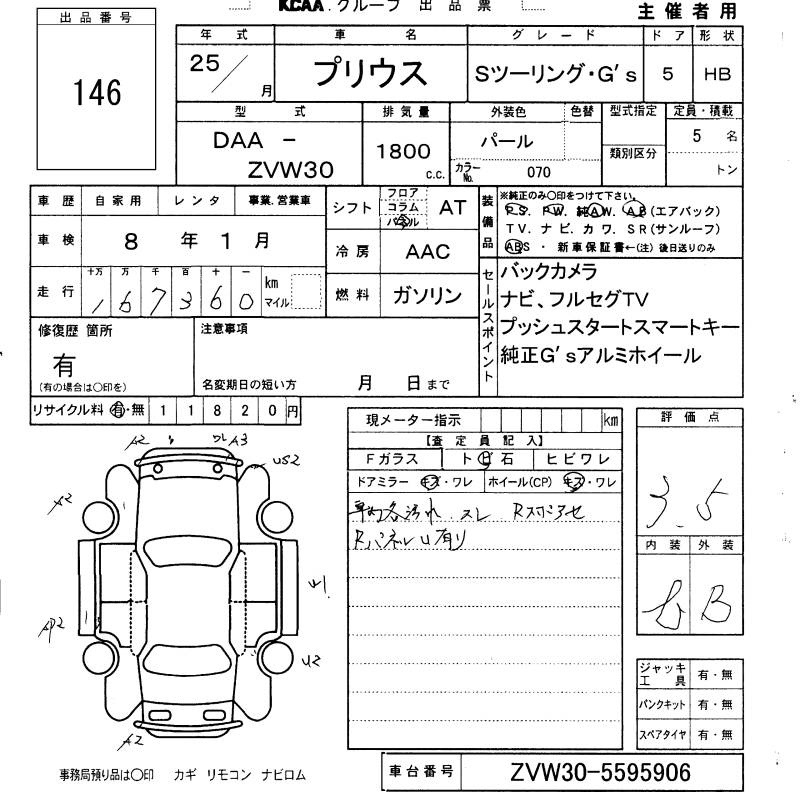 KCAA.グループ 出品票
主催者用
出品番号
146
年式 車名 グレード ドア 形状
25/ 月 プリウス Sツーリング・G's 5 HB
型式 排気量 外装色 色替 型式指定 定員・積載
DAA - ZVW30 1800 c.c. パール 類別区分 5 名
カラーNo. 070 トン
車歴 自家用 レンタ 事業.営業車
シフト フロア コラム パネル AT
装備品
※純正のみ○印をつけて下さい。
P.S. P.W. 純A.W. A.B(エアバック)
T.V. ナビ. カワ. S.R(サンルーフ)
ABS ・ 新車保証書←(注)後日送りのみ
車検 8 年 1 月
冷房 AAC
走行 十万 万 千 百 十 一
1 6 7 3 6 0 km マイル
燃料 ガソリン
セールスポイント
バックカメラ
ナビ、フルセグTV
プッシュスタートスマートキー
純正G'sアルミホイール
修復歴 箇所
有
(有の場合は○印を)
注意事項
名変期日の短い方 月 日まで
リサイクル料 有・無 11820円
現メーター指示 km
【査定員記入】
Fガラス 飛石 ヒビワレ
ドアミラー キズ・ワレ ホイール(CP) キズ・ワレ
車内各汚れ スレ
Rパネル 有り
評価点
3.5
内装 外装
B
A2 A3
US2
A2
W1
AP2
U2
A2
ジャッキ工具 有・無
パンクキット 有・無
スペアタイヤ 有・無
事務局預り品は○印 カギ リモコン ナビロム
車台番号 ZVW30-5595906